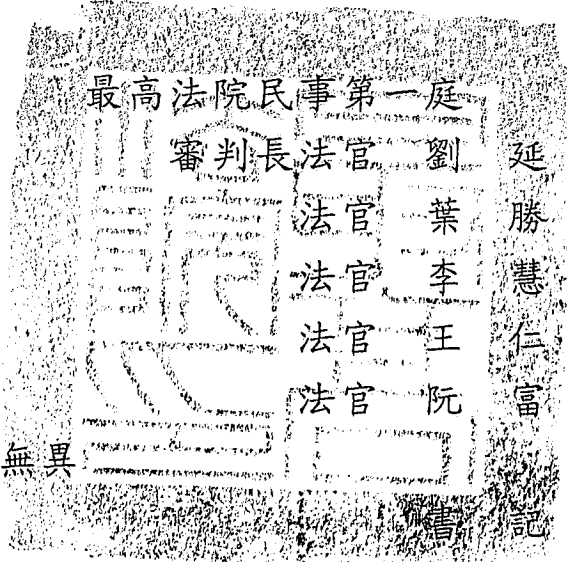 最高法院民事第一庭
審判長法官 劉 延
法官 葉 勝
法官 李 慧
法官 王 仁
法官 阮 富
無異
書 記